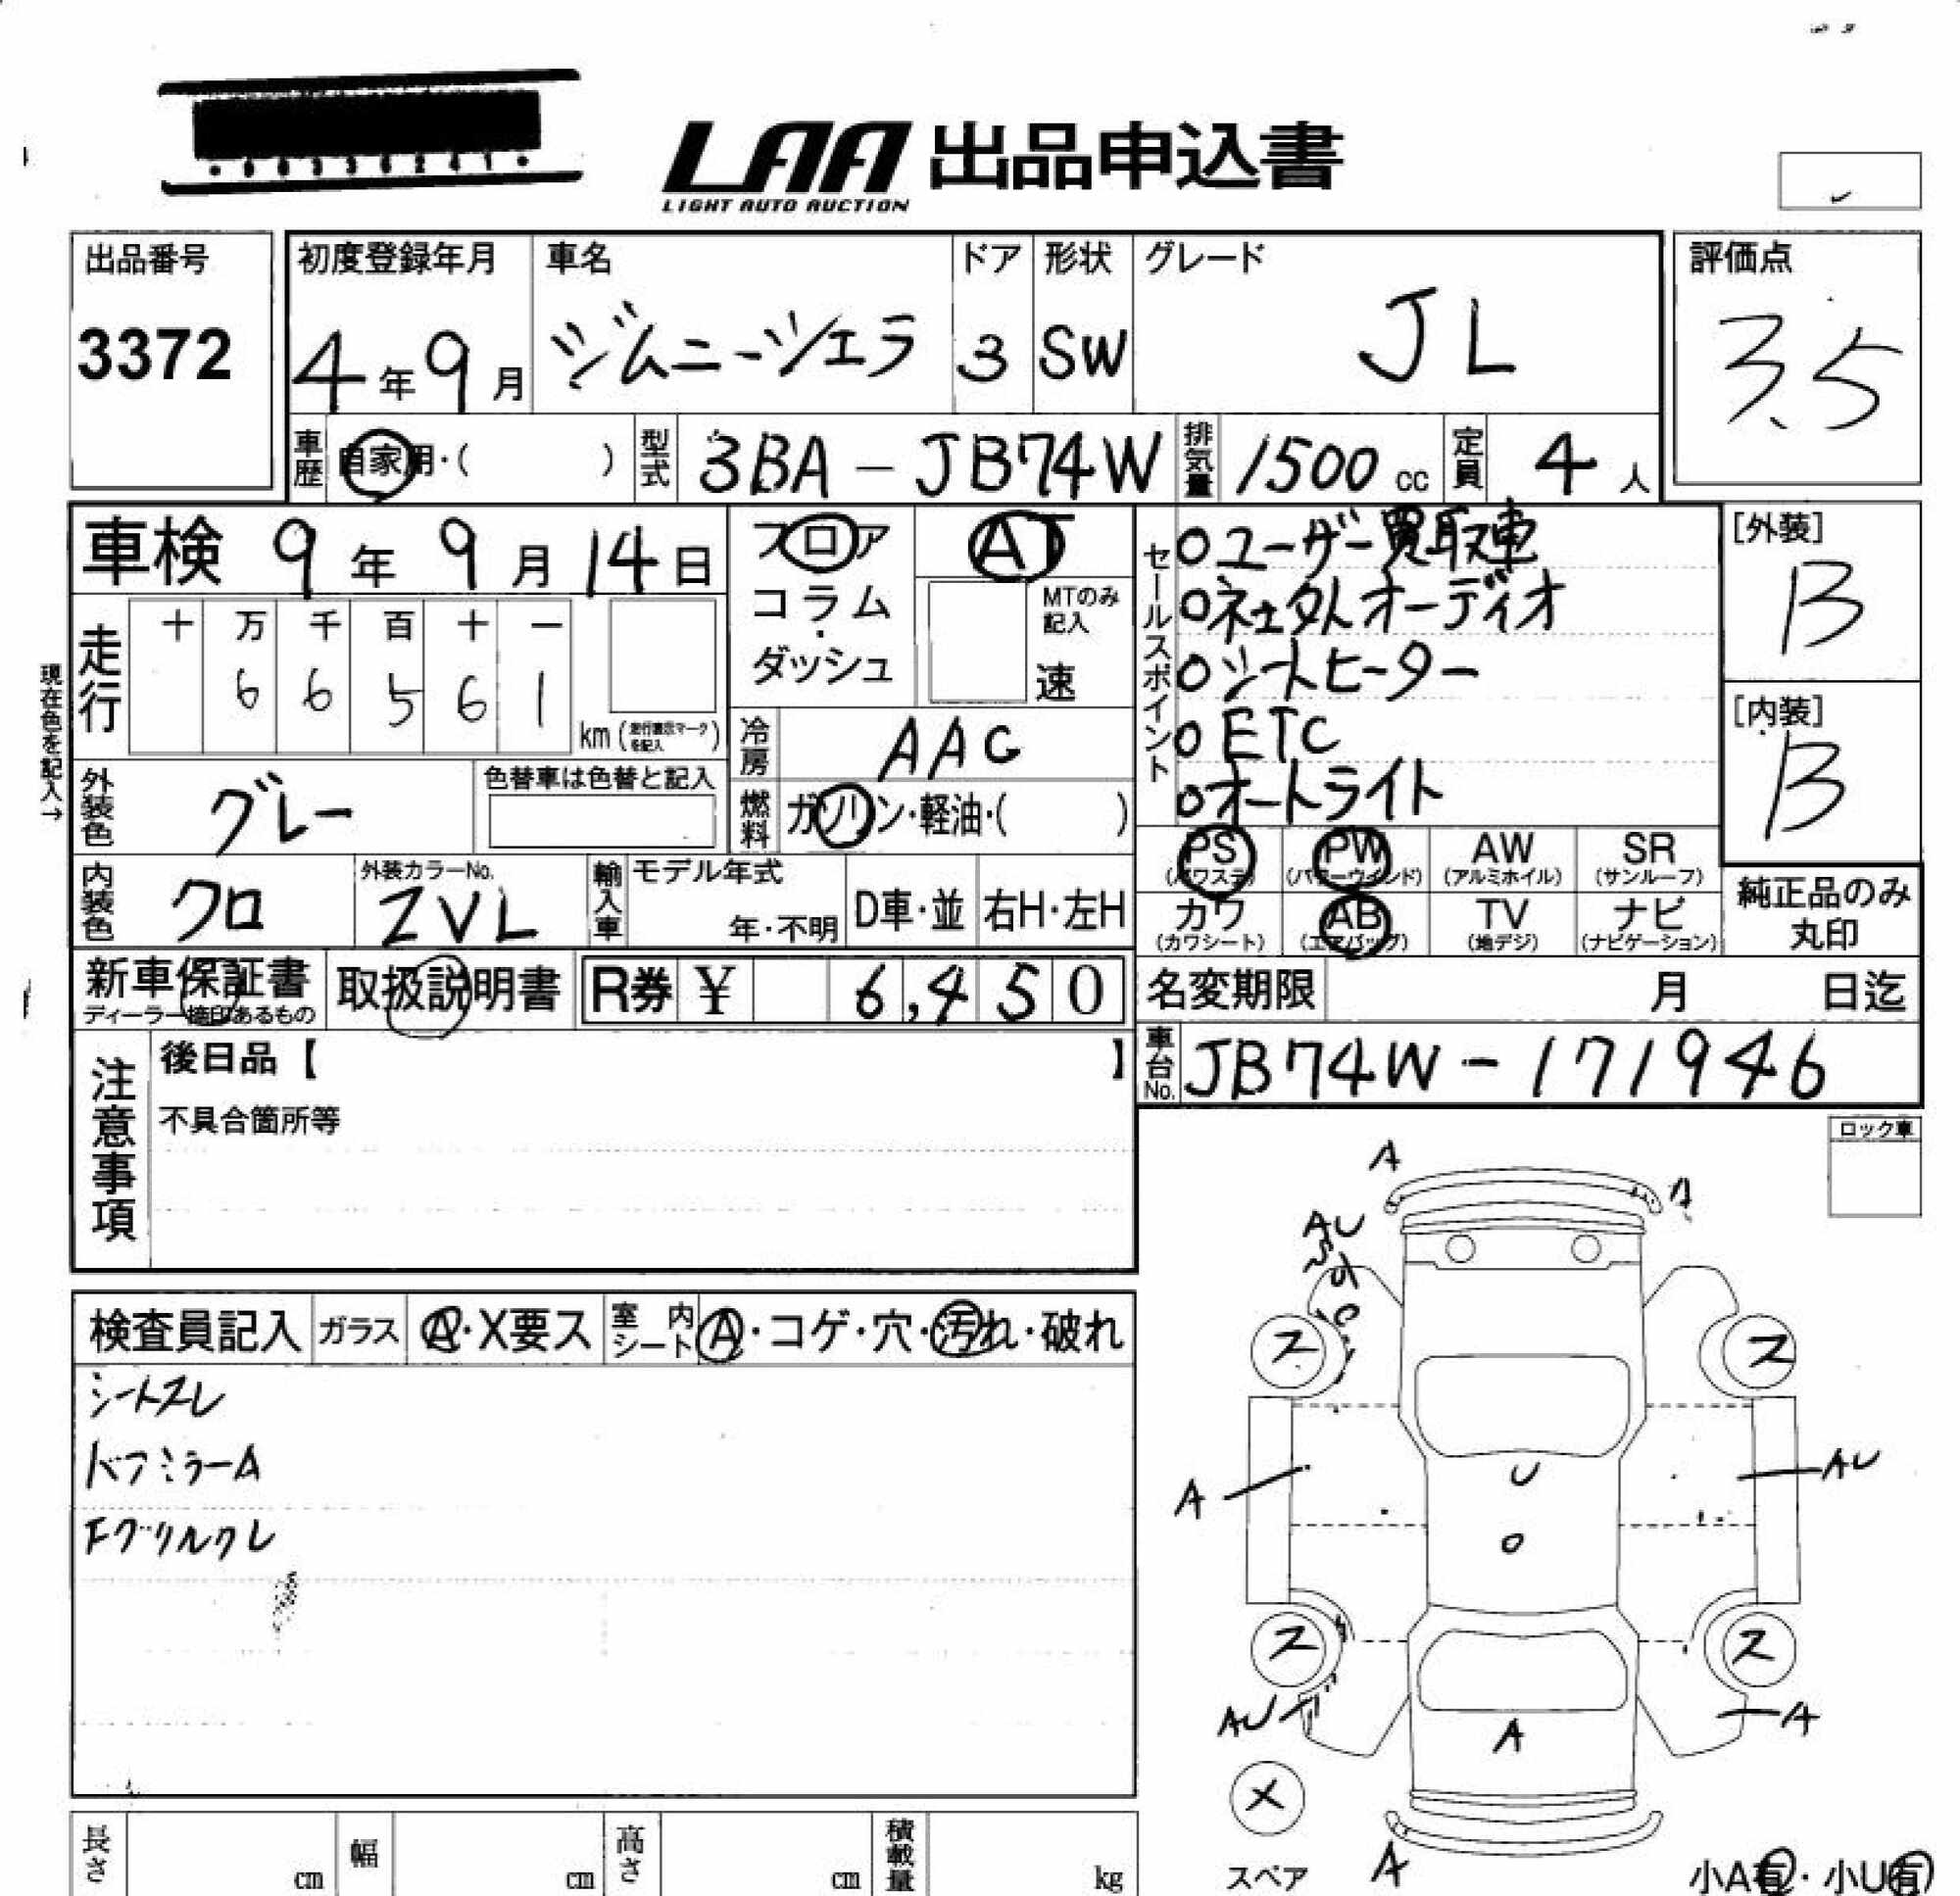 LAA 出品申込書
LIGHT AUTO AUCTION
出品番号
3372
初度登録年月
4年9月
車名
ジムニーシエラ
ドア
3
形状
SW
グレード
JL
評価点
3.5
車歴
自家用・( )
型式
3BA-JB74W
排気量
1500cc
定員
4人
車検 9年9月14日
フロア
コラム
・
ダッシュ
AT
MTのみ記入
速
セールスポイント
○ユーザー買取車
○オーディオ
○シートヒーター
○ETC
○オートライト
[外装]
B
[内装]
B
現在色を記入→
走行
十 万 千 百 十 一
6 6 5 6 1
km(走行表示マークを記入)
冷房
AAC
外装色
グレー
色替車は色替と記入
燃料
ガソリン・軽油・( )
PS
(パワステ)
PW
(パワーウインド)
AW
(アルミホイル)
SR
(サンルーフ)
カワ
(カワシート)
AB
(エアバッグ)
TV
(地デジ)
ナビ
(ナビゲーション)
純正品のみ
丸印
内装色
クロ
外装カラーNo.
ZVL
輸入車
モデル年式
年・不明
D車・並
右H・左H
新車保証書
ディーラー捺印あるもの
取扱説明書
R券 ¥ 6,450
名変期限 月 日迄
車台No.
JB74W-171946
注意事項
後日品【 】
不具合箇所等
ロック車
検査員記入
ガラス
A・X要ス
室内シート
A・コゲ・穴・汚れ・破れ
シートスレ
ドアミラーA
Fグリルクレ
A
AU
ス
ス
U
A
AU
ス
ス
AU
A
A
X
スペア
A
小A有・小U有
長さ
cm
幅
cm
高さ
cm
積載量
kg